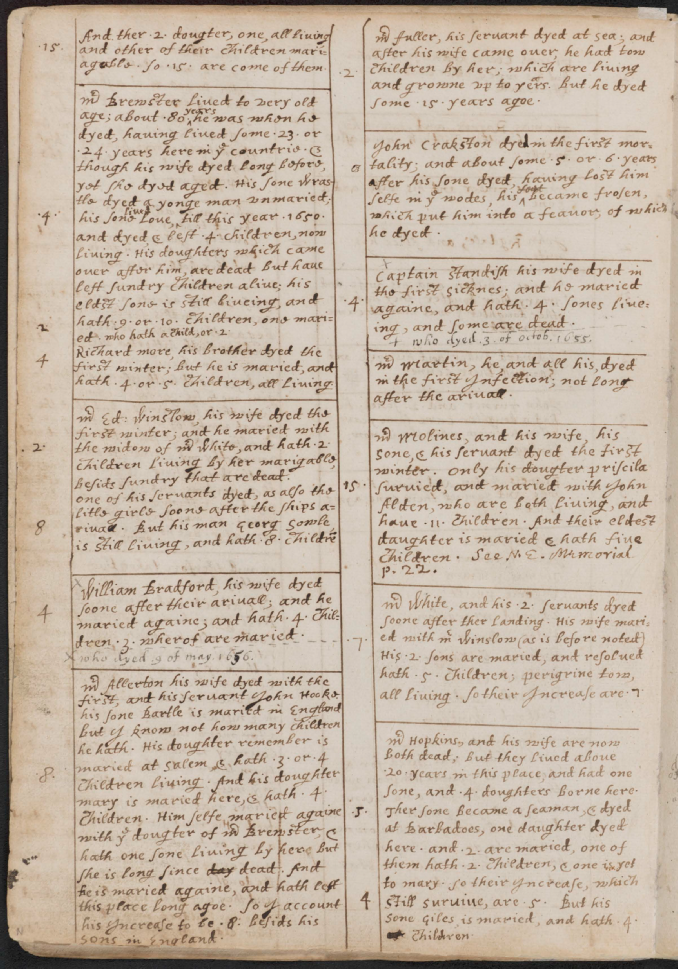 ·15·
And ther ·2· dougter, one, all living
and other of their Children mari=
agable. So ·15· are come of them.
mr Brewster lived to very old
age; about ·80· years he was when he
dyed, having lived some ·23· or
·24· years here in ye countrie. &
though his wife dyed long before,
yet she dyed aged. His sone Wras=
tle dyed a yonge man unmaried;
·4·
his sone Love, lived till this year ·1650·
and dyed & left ·4· Children, now
living. His doughters which came
over after him, are dead but have
left sundry Children alive; his
eldst sone is still liveing, and
hath ·9· or ·10· Children, one mari=
2
ed who hath a child, or ·2·
4
Richard more his brother dyed the
first winter; but he is maried, and
hath ·4· or ·5· Children, all living
mr Ed: Winslow, his wife dyed the
first winter; and he maried with
2·
the widow of mr White, and hath ·2·
Children living by her marigable,
besids sundry that are dead.
one of his servants dyed, as also the
litle girle soone after the ships a=
8
rivall. But his man Georg Sowle
is still living, and hath ·8· Childre
William Bradford, his wife dyed
soone after their arivall; and he
4
maried againe; and hath ·4· Chil=
dren, ·3· wherof are maried.
x who dyed 9 of may, 1656.
mr Allerton his wife dyed with the
first, and his servant John Hooke.
his sone Bartle is maried in England
but I know not how many Children
he hath. His doughter remember is
maried at Salem & hath ·3· or ·4
8·
Children living. And his doughter
mary is maried here, & hath ·4·
Children. Him selfe maried againe
with ye dougter of mr Brewster, &
hath one sone living by here but
she is long since dead. And
he is maried againe, and hath left
this place long agoe. So I account
his Increase to be ·8· besids his
sons in England.
mr fuller, his servant dyed at sea; and
after his wife came over, he had tow
·2·
Children by her; which are living
and growne up to years. but he dyed
some ·15· years agoe.
John Crakston dyed in the first mor=
tality; and about some ·5· or ·6· years
0
after his sone dyed, having lost him
selfe in ye wodes, his feet became frosen,
which put him into a feavor, of which
he dyed.
Captain Standish his wife dyed in
the first sicknes; and he maried
·4·
againe, and hath ·4· sones live=
ing, and some are dead.
+ who dyed 3 of octob. 1655.
mr Martin, he, and all his, dyed
in the first Infection; not long
after the arivall.
mr Molines, and his wife, his
sone, & his servant dyed the first
winter. Only his dougter priscila
15·
survied, and maried with John
Alden, who are both living, and
have ·11· Children. And their eldest
daughter is maried & hath five
Children. See N.E. Memorial
p. 22.
mr White, and his ·2· servants dyed
soone after ther landing. His wife mari=
·7·
ed with mr Winslow (as is before noted)
His ·2· sons are maried, and resolved
hath ·5· Children; perigrine tow,
all living. So their Increase are ·7
mr Hopkins, and his wife are now
both dead; but they lived above
20· years in this place, and had one
sone, and ·4· doughters borne here.
·5·
Ther sone became a seaman, & dyed
at Barbadoes, one daughter dyed
here. and ·2· are maried, one of
them hath ·2· Children, & one is yet
to mary. So their Increase, which
4
still survive, are ·5· But his
sone Giles is maried, and hath ·4·
Children.